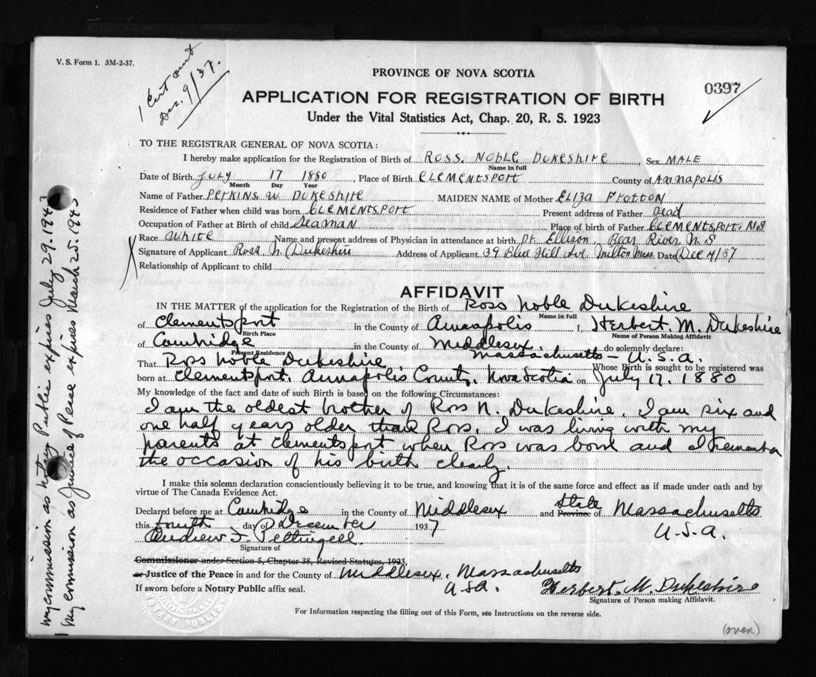 V. S. Form 1. 3M-2-37.
1 Cert sent
Dec. 9/37.
PROVINCE OF NOVA SCOTIA
0397
APPLICATION FOR REGISTRATION OF BIRTH
Under the Vital Statistics Act, Chap. 20, R. S. 1923
TO THE REGISTRAR GENERAL OF NOVA SCOTIA:
I hereby make application for the Registration of Birth of Ross. Noble Dukeshire Sex MALE
Name in full
Date of Birth July 17 1880 Place of Birth CLEMENTSPORT County of Annapolis
Month Day Year
Name of Father Perkins W Dukeshire MAIDEN NAME of Mother Eliza
Residence of Father when child was born CLEMENTSPORT Present address of Father Dead
Occupation of Father at Birth of child Seaman Place of birth of Father CLEMENTSPORT. N.S
Race White Name and present address of Physician in attendance at birth Dr. Ellison. Bear River N.S
Signature of Applicant Ross N. Dukeshire Address of Applicant 39 Blue Hill Ave. Milton Mass. Date Dec 4/37
Relationship of Applicant to child
AFFIDAVIT
IN THE MATTER of the application for the Registration of the Birth of Ross Noble Dukeshire
Name in full
of Clementsport in the County of Annapolis I, Herbert M. Dukeshire
Birth Place Name of Person Making Affidavit
of Cambridge in the County of Middlesex. do solemnly declare:
Present Residence Massachusetts - U.S.a.
That Ross Noble Dukeshire Whose Birth is sought to be registered was
born at Clementsport, Annapolis County, Nova Scotia on July 17. 1880
My knowledge of the fact and date of such Birth is based on the following Circumstances:
I am the oldest brother of Ross N. Dukeshire. I am six and
one half years older than Ross. I was living with my
parents at Clementsport when Ross was born and I remember
the occasion of his birth clearly.
I make this solemn declaration conscientiously believing it to be true, and knowing that it is of the same force and effect as if made under oath and by
virtue of The Canada Evidence Act.
Declared before me at Cambridge in the County of Middlesex and State Province of Massachusetts
this fourth day of December 1937 U.S.a.
Andrew J. Pettingell
Signature of
Commissioner under Section 5, Chapter 38, Revised Statutes, 1923
or Justice of the Peace in and for the County of Middlesex, Massachusetts
If sworn before a Notary Public affix seal. USA. Herbert. M. Dukeshire
Signature of Person making Affidavit.
For Information respecting the filling out of this Form, see Instructions on the reverse side.
(over)
My commission as Notary Public expires July 29. 1942
My commission as Justice of Peace expires March 25. 1943